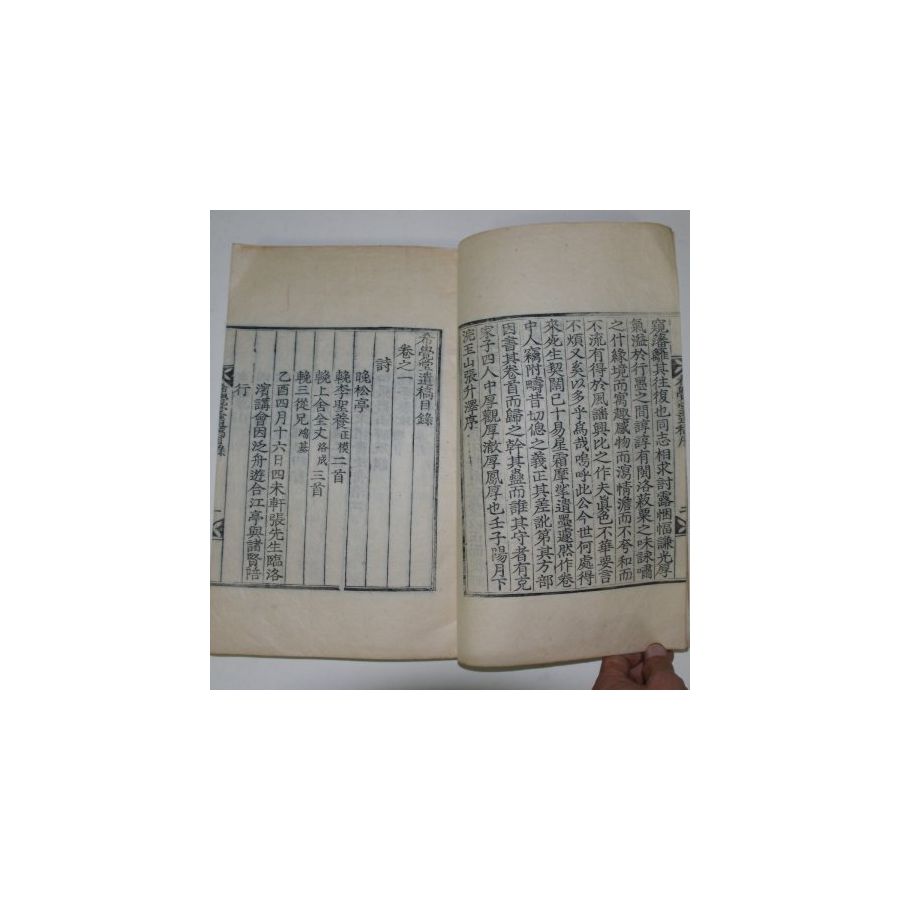 窺藩籬其往復也同志相求討露悃愊謙光厚
氣溢於行墨之間諄諄有閩洛菽粟之味詠嘯
之什緣境而寓趣感物而瀉情澹而不夸和而
不流有得於風諷興比之作夫眞色不華要言
不煩又奚以多乎爲哉嗚呼此公今世何處得
來兂生契闊已十易星霜摩挲遺墨遽然作卷
中人竊附疇昔切偲之義正其差訛第其方部
因書其卷首而歸之幹其蠱而誰其守者有克
家子四人中厚觀厚澈厚鳳厚也壬子陽月下
浣玉山張升澤序
希覺堂遺稿目錄
卷之一
詩
晩松亭
輓李聖養正模二首
輓上舍金丈洛成三首
輓三從兄鴻基
乙酉四月十六日四未軒張先生臨洛
濱講會因泛舟遊合江亭與諸賢陪
行